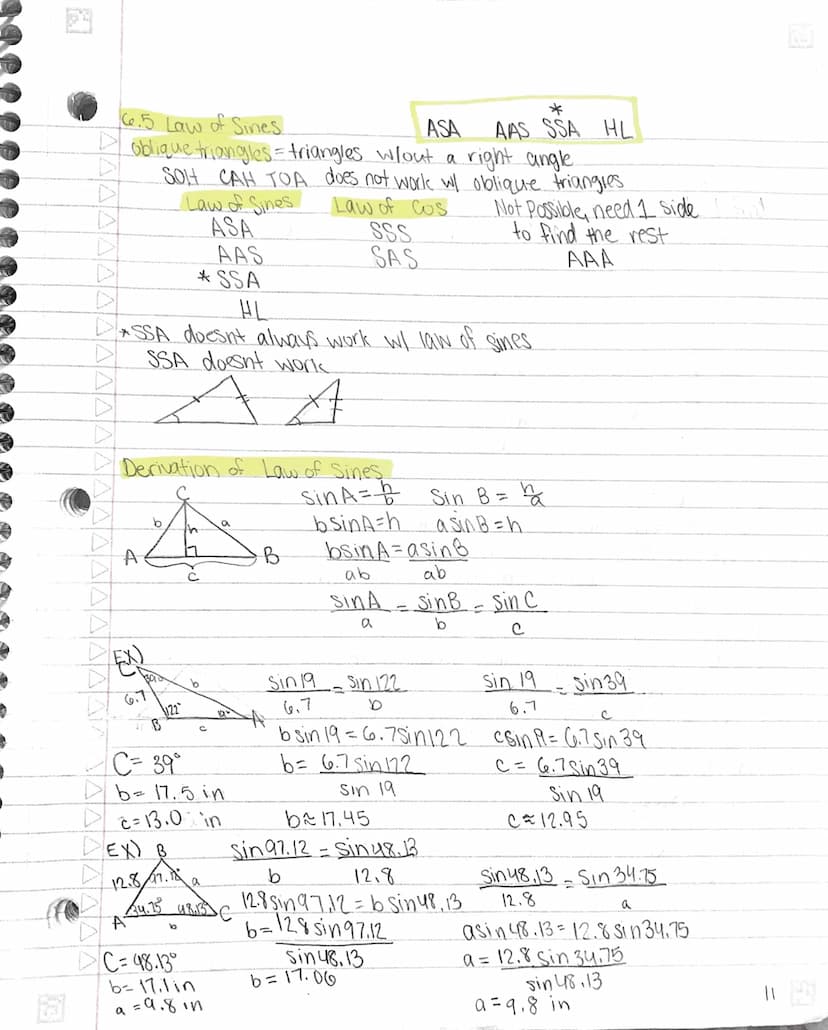 6.5 Law of Sines
*
ASA AAS SSA HL
oblique triangles = triangles w/out a right angle
SOH CAH TOA does not work w/ oblique triangles
Law of Sines Law of Cos Not Possible, need 1 side
ASA SSS to find the rest
AAS SAS AAA
* SSA
HL
*SSA doesnt always work w/ law of sines
SSA doesnt work
Derivation of Law of Sines
C
b h a
A B
c
sin A = h/b Sin B = h/a
b sin A = h a sin B = h
bsinA = asinB
ab ab
sinA = sinB = sin C
a b c
EX)
C 39° b
6.7 122° 19° A
B c
sin 19 = sin 122 sin 19 = sin 39
6.7 b 6.7 c
b sin 19 = 6.7 sin 122 c sin 19 = 6.7 sin 39
C = 39° b = 6.7 sin 122 c = 6.7 sin 39
b = 17.5 in sin 19 sin 19
c = 13.0 in b ≈ 17.45 c ≈ 12.95
EX) B
12.8 97.12° a
A 34.75° 48.13° C
b
sin 97.12 = sin 48.13 sin 48.13 = sin 34.75
b 12.8 12.8 a
12.8 sin 97.12 = b sin 48.13 a sin 48.13 = 12.8 sin 34.75
b = 12.8 sin 97.12 a = 12.8 sin 34.75
sin 48.13 sin 48.13
C = 48.13° b = 17.06 a = 9.8 in
b = 17.1 in
a = 9.8 in
11